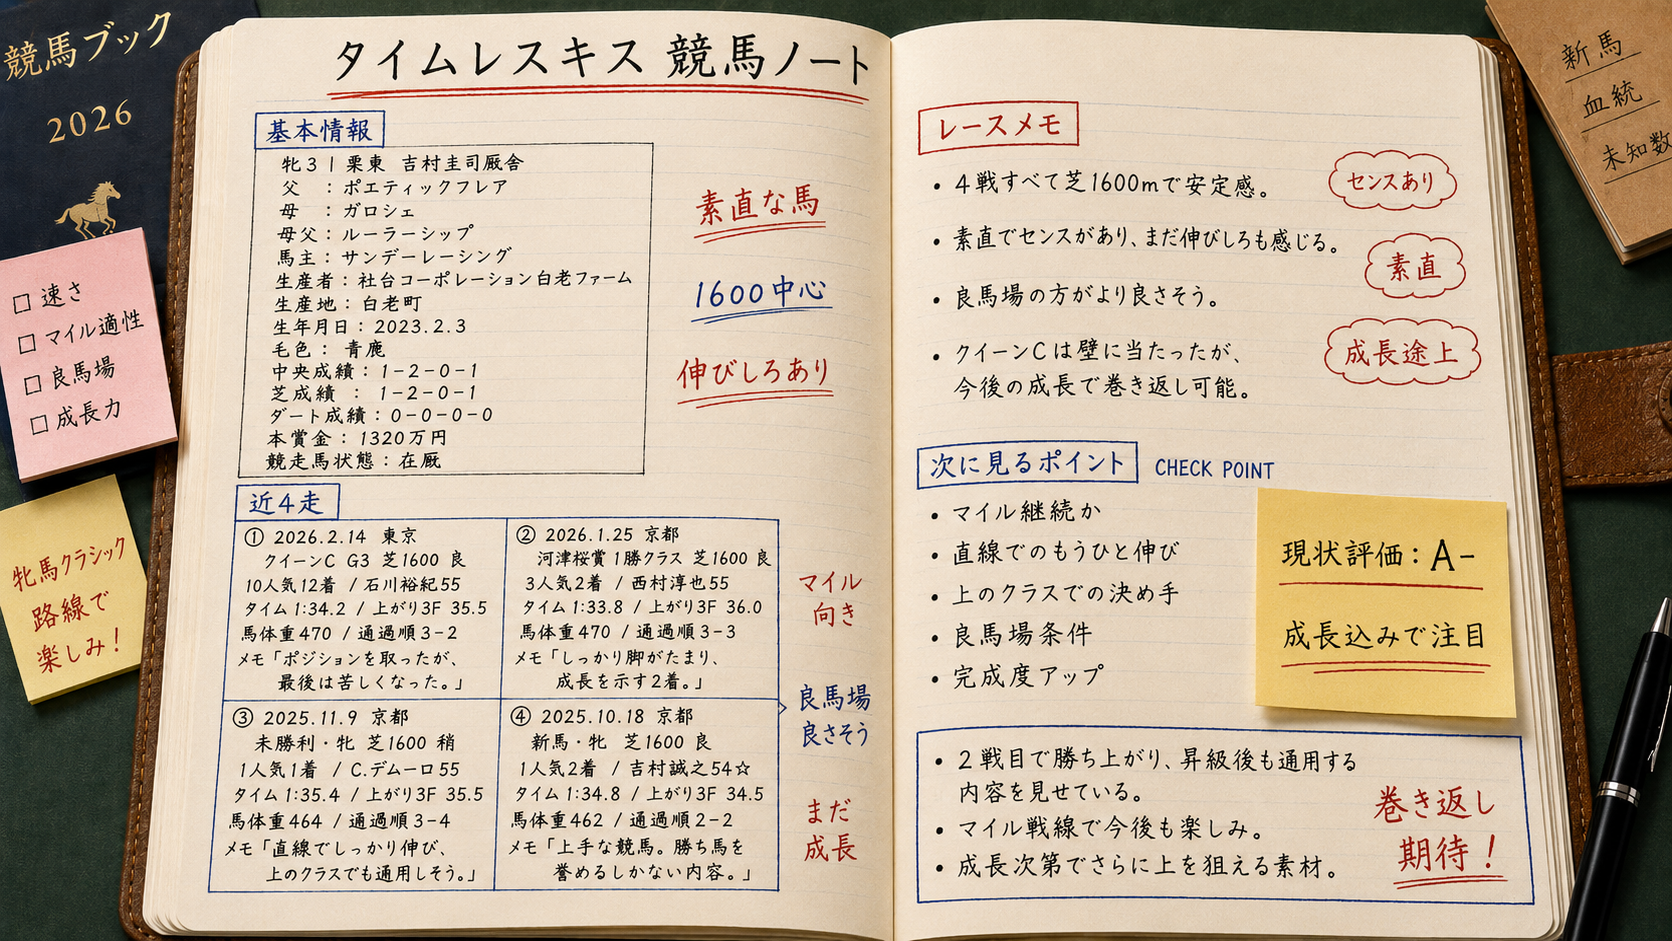 競馬ブック
2026
□ 速さ
□ マイル適性
□ 良馬場
□ 成長力
牝馬クラシック
路線で
楽しみ！
タイムレスキス 競馬ノート
基本情報
牝3 | 栗東 吉村圭司厩舎
父 ：ポエティックフレア
母 ：ガロシェ
母父：ルーラーシップ
馬主：サンデーレーシング
生産者：社台コーポレーション白老ファーム
生産地：白老町
生年月日：2023.2.3
毛色： 青鹿
中央成績：1-2-0-1
芝成績 ：1-2-0-1
ダート成績：0-0-0-0
本賞金：1320万円
競走馬状態：在厩
素直な馬
1600中心
伸びしろあり
近4走
① 2026.2.14 東京
クイーンC G3 芝1600 良
10人気12着 / 石川裕紀55
タイム 1:34.2 / 上がり3F 35.5
馬体重470 / 通過順3-2
メモ「ポジションを取ったが、
最後は苦しくなった。」
② 2026.1.25 京都
河津桜賞 1勝クラス 芝1600 良
3人気2着 / 西村淳也55
タイム 1:33.8 / 上がり3F 36.0
馬体重470 / 通過順3-3
メモ「しっかり脚がたまり、
成長を示す2着。」
③ 2025.11.9 京都
未勝利・牝 芝1600 稍
1人気1着 / C.デムーロ55
タイム 1:35.4 / 上がり3F 35.5
馬体重464 / 通過順3-4
メモ「直線でしっかり伸び、
上のクラスでも通用しそう。」
④ 2025.10.18 京都
新馬・牝 芝1600 良
1人気2着 / 吉村誠之54☆
タイム 1:34.8 / 上がり3F 34.5
馬体重462 / 通過順2-2
メモ「上手な競馬。勝ち馬を
誉めるしかない内容。」
マイル
向き
良馬場
良さそう
まだ
成長
レースメモ
・4戦すべて芝1600mで安定感。
・素直でセンスがあり、まだ伸びしろも感じる。
・良馬場の方がより良さそう。
・クイーンCは壁に当たったが、
今後の成長で巻き返し可能。
センスあり
素直
成長途上
次に見るポイント CHECK POINT
・マイル継続か
・直線でのもうひと伸び
・上のクラスでの決め手
・良馬場条件
・完成度アップ
現状評価：A-
成長込みで注目
・2戦目で勝ち上がり、昇級後も通用する
内容を見せている。
・マイル戦線で今後も楽しみ。
・成長次第でさらに上を狙える素材。
巻き返し
期待！
新馬
血統
未知数